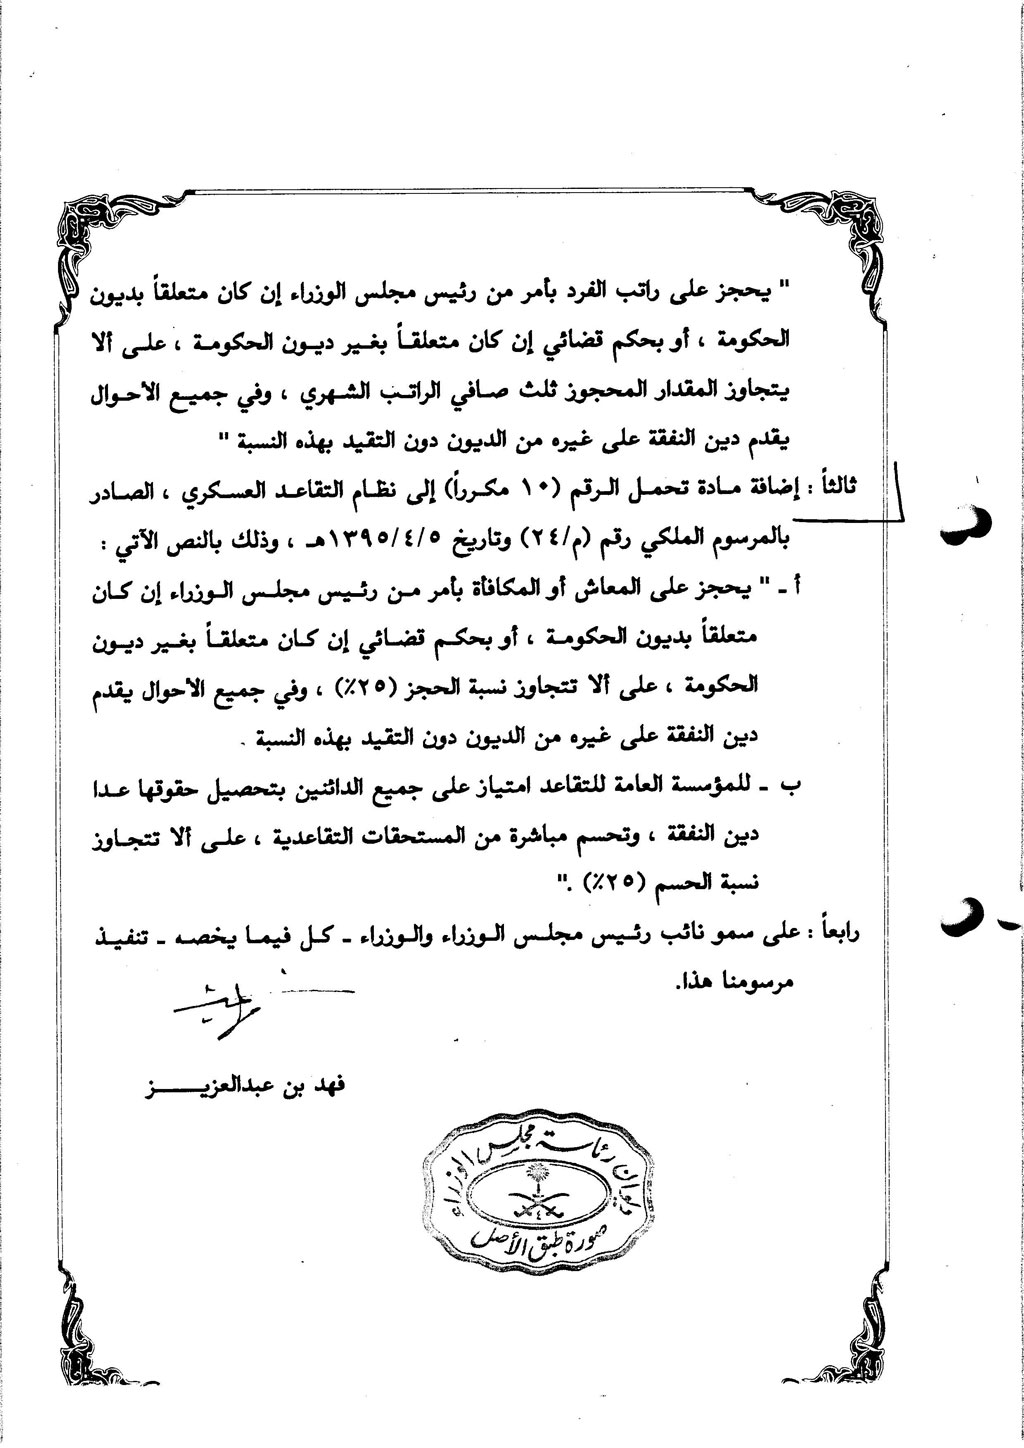 " يحجز على راتب الفرد بأمر من رئيس مجلس الوزراء إن كان متعلقاً بديون
الحكومة ، أو بحكم قضائي إن كان متعلقاً بغير ديون الحكومة ، على ألا
يتجاوز المقدار المحجوز ثلث صافي الراتب الشهري ، وفي جميع الأحوال
يقدم دين النفقة على غيره من الديون دون التقيد بهذه النسبة "
ثالثاً : إضافة مادة تحمل الرقم (١٠ مكرراً) إلى نظام التقاعد العسكري ، الصادر
بالمرسوم الملكي رقم (م/٢٤) وتاريخ ١٣٩٥/٤/٥هـ ، وذلك بالنص الآتي :
أ - " يحجز على المعاش أو المكافأة بأمر من رئيس مجلس الوزراء إن كان
متعلقاً بديون الحكومة ، أو بحكم قضائي إن كان متعلقاً بغير ديون
الحكومة ، على ألا تتجاوز نسبة الحجز (٢٥٪) ، وفي جميع الأحوال يقدم
دين النفقة على غيره من الديون دون التقيد بهذه النسبة .
ب - للمؤسسة العامة للتقاعد امتياز على جميع الدائنين بتحصيل حقوقها عدا
دين النفقة ، وتحسم مباشرة من المستحقات التقاعدية ، على ألا تتجاوز
نسبة الحسم (٢٥٪) ."
رابعاً : على سمو نائب رئيس مجلس الوزراء والوزراء - كل فيما يخصه - تنفيذ
مرسومنا هذا.
فهد بن عبدالعزيز
ديوان رئاسة مجلس الوزراء
صورة طبق الأصل